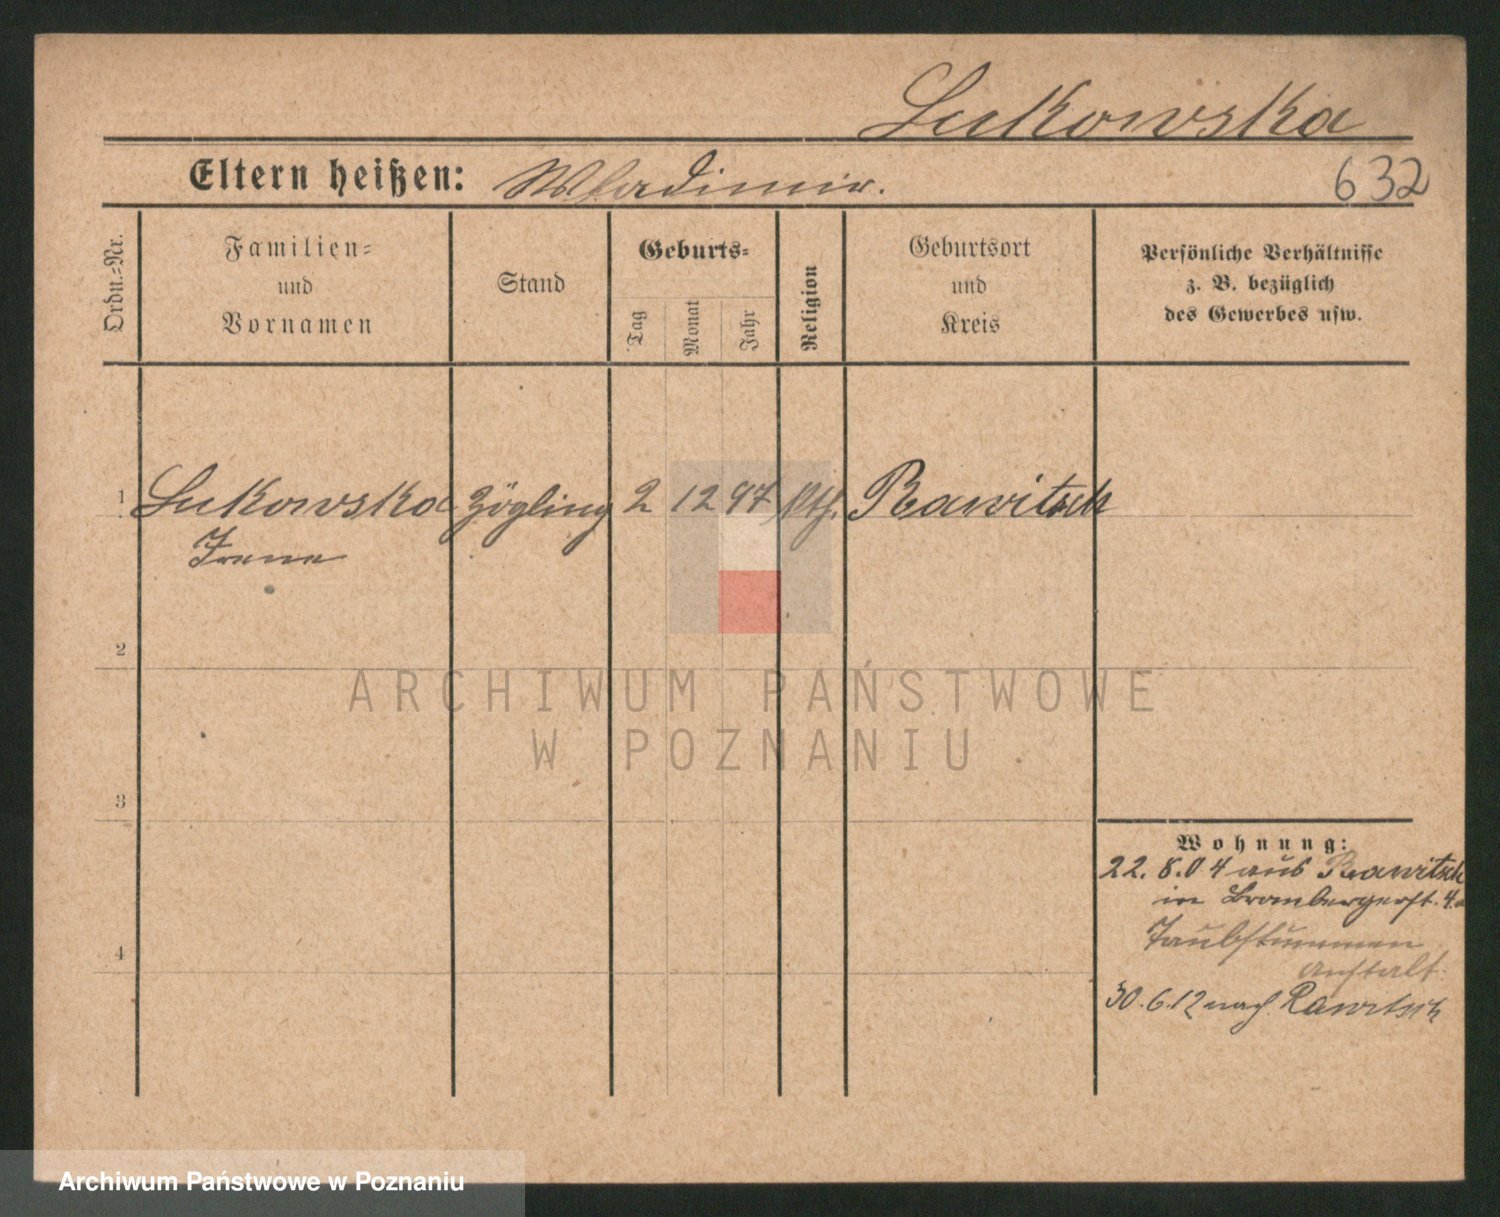 Lukowska
Eltern heißen: Wladimir.
632
Ordn.=Nr.
Familien=
und
Vornamen
Stand
Geburts=
Tag
Monat
Jahr
Religion
Geburtsort
und
Kreis
Persönliche Verhältnisse
z. B. bezüglich
des Gewerbes usw.
1 Lukowska Zögling 2 12 97 kth. Rawitsch
Irene
2
ARCHIWUM PAŃSTWOWE
W POZNANIU
3
Wohnung:
22.8.04 aus Rawitsch
in Brombergerst. 4a
4
Taubstummen
anstalt.
30.6.12 nach Rawitsch
Archiwum Państwowe w Poznaniu